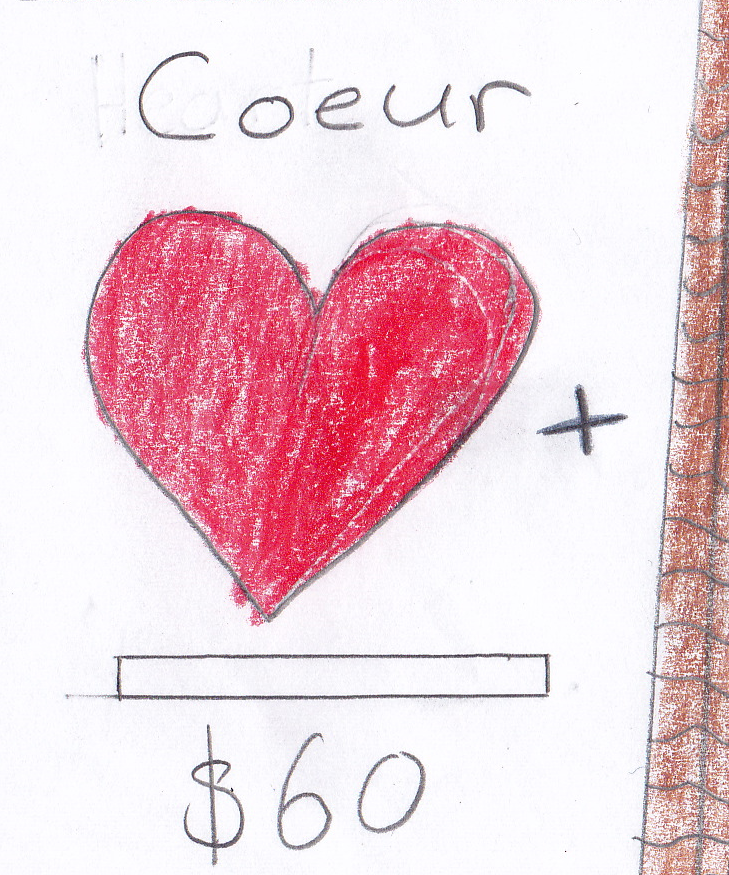 Coeur
+
$60